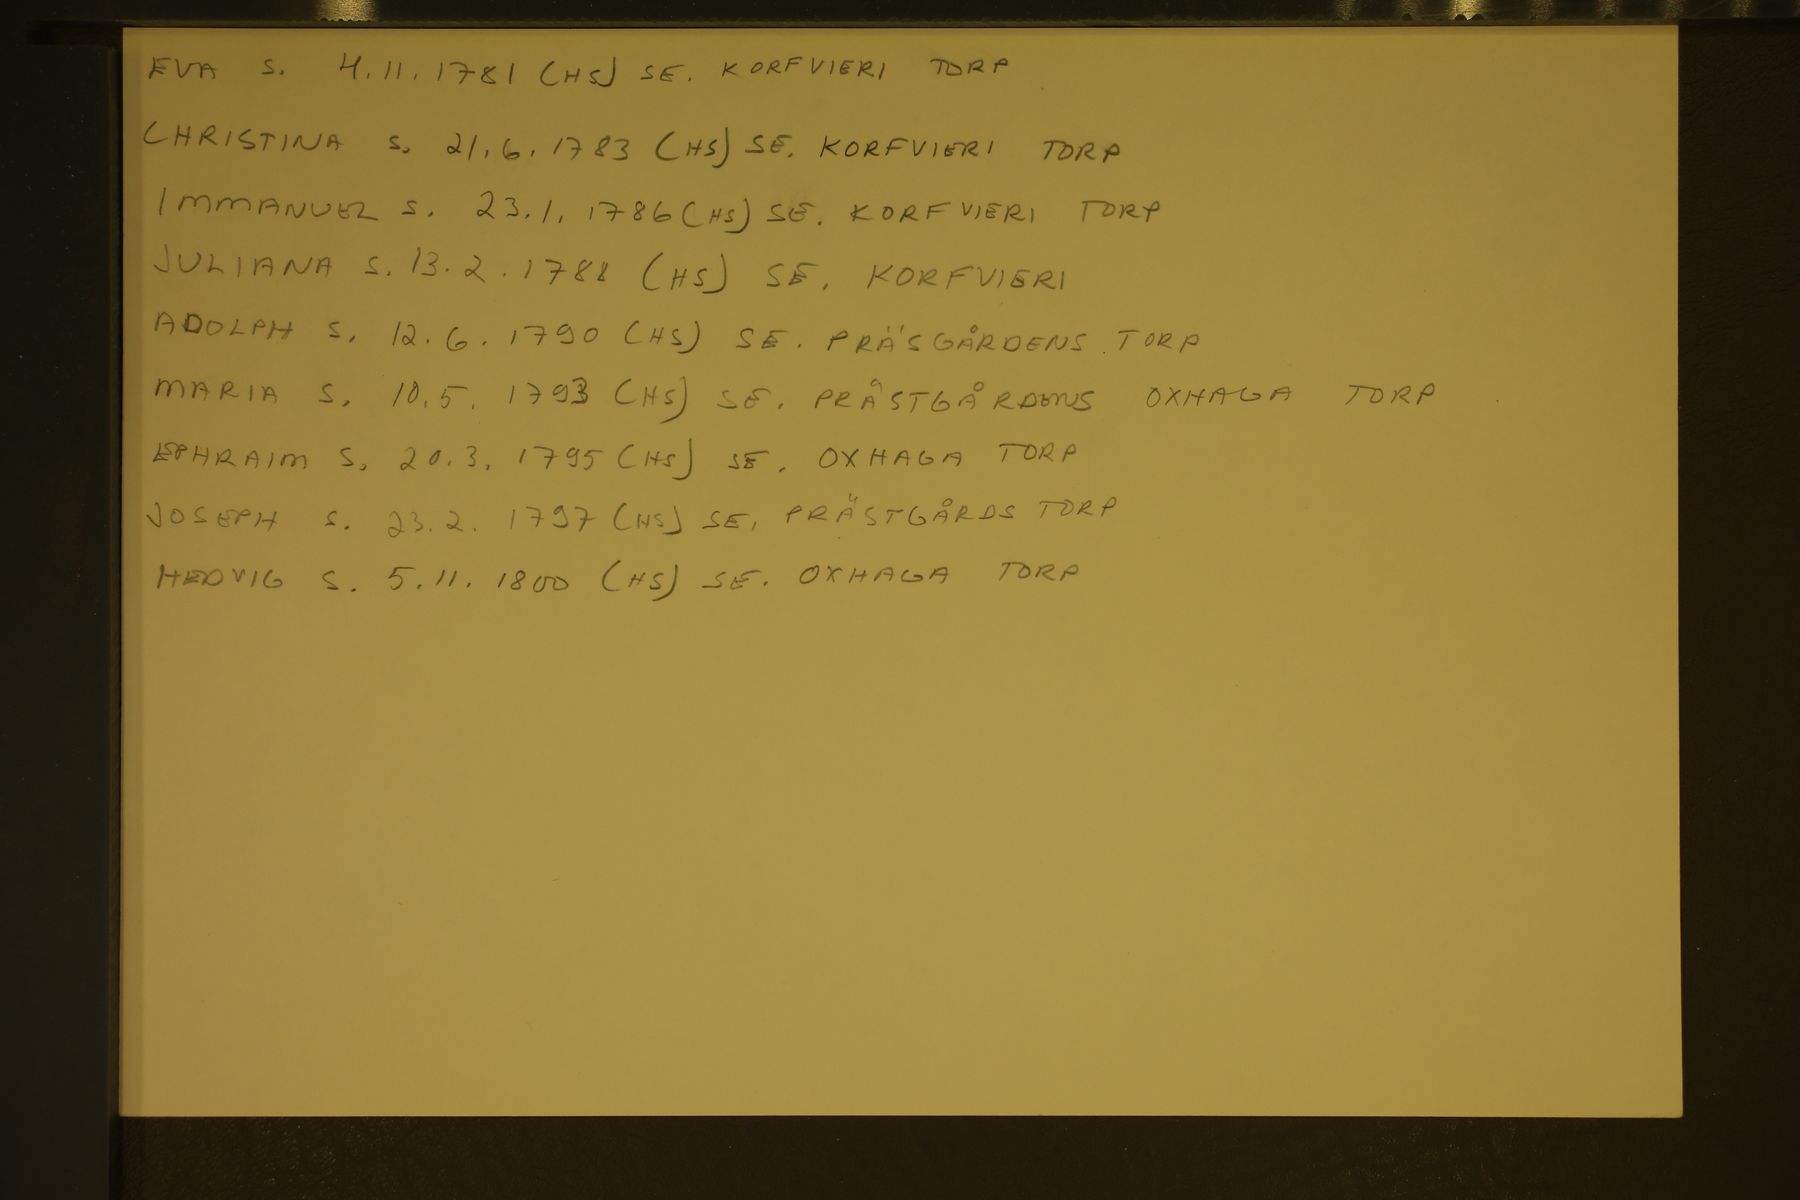 EVA S. 4.11.1781 (HS) SE. KORFVIERI TORP
CHRISTINA S. 21.6.1783 (HS) SE. KORFVIERI TORP
IMMANUEL S. 23.1.1786 (HS) SE. KORFVIERI TORP
JULIANA S. 13.2.1788 (HS) SE. KORFVIERI
ADOLPH S. 12.6.1790 (HS) SE. PRÄSGÅRDENS TORP
MARIA S. 10.5.1793 (HS) SE. PRÅSTGÅRDENS OXHAGA TORP
EPHRAIM S. 20.3.1795 (HS) SE. OXHAGA TORP
JOSEPH S. 23.2.1797 (HS) SE. PRÄSTGÅRDS TORP
HEDVIG S. 5.11.1800 (HS) SE. OXHAGA TORP